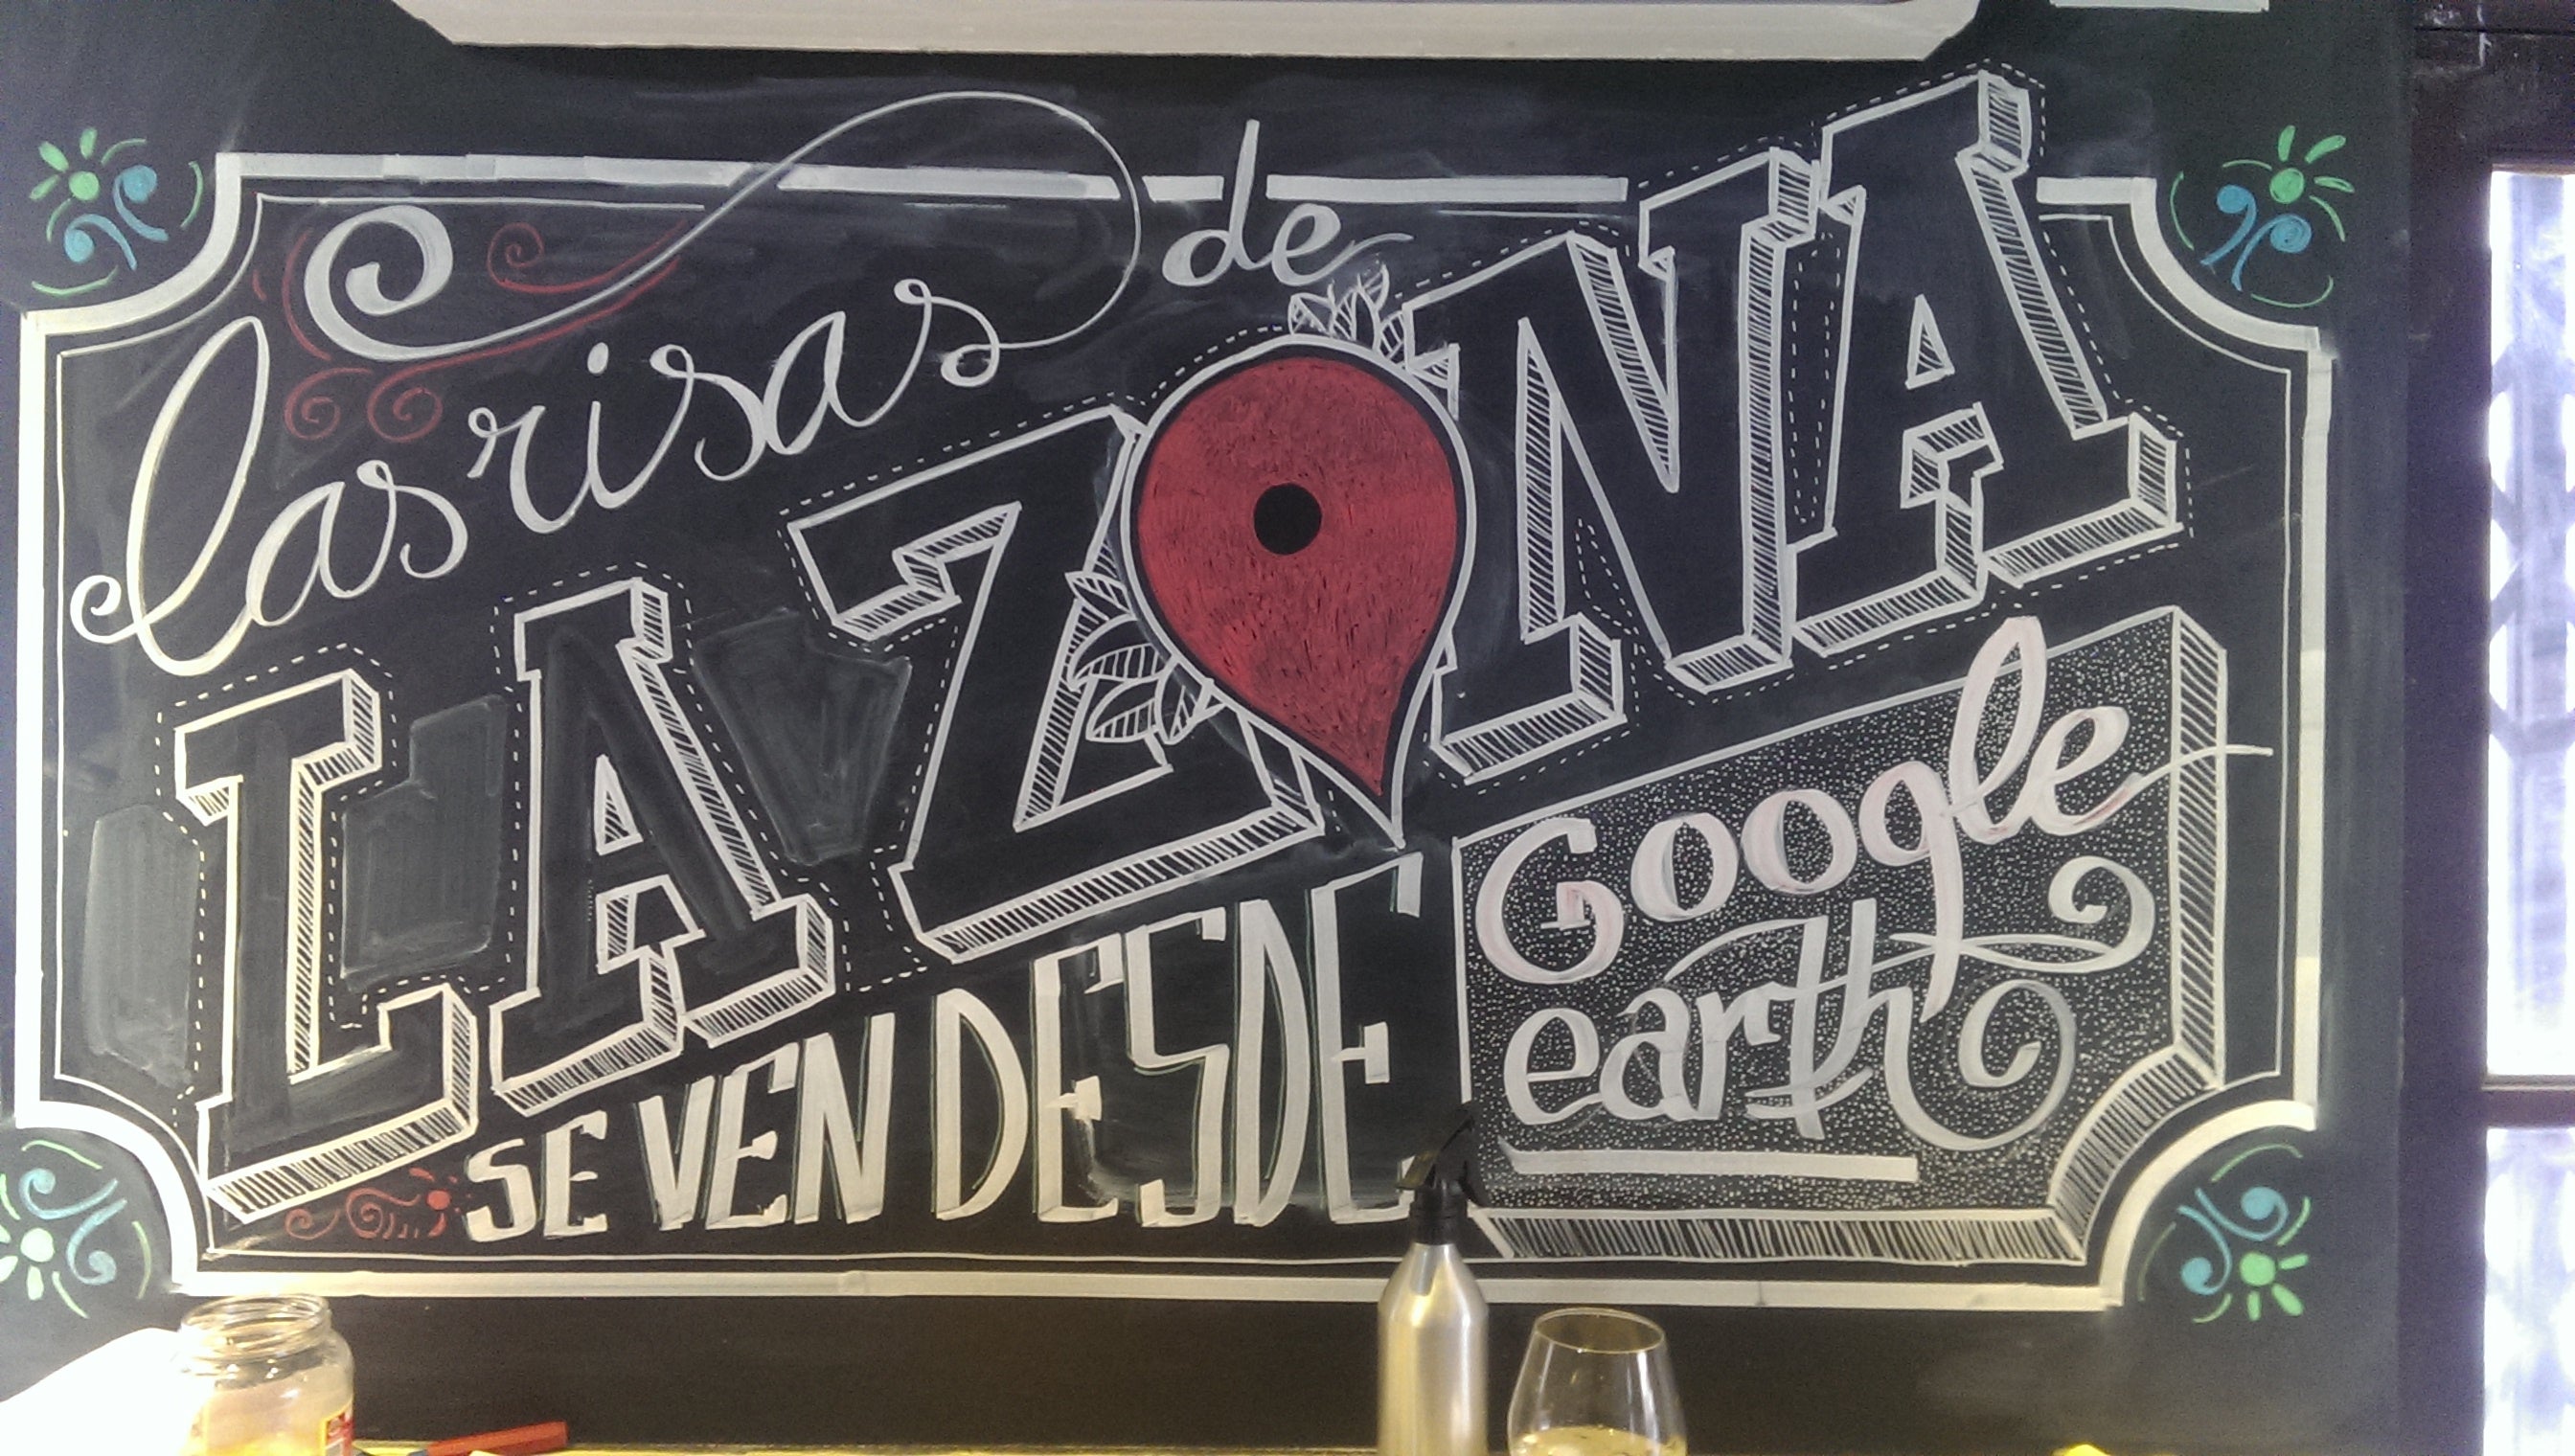 las risas de
LA ZONA
SE VEN DESDE
Google
earth